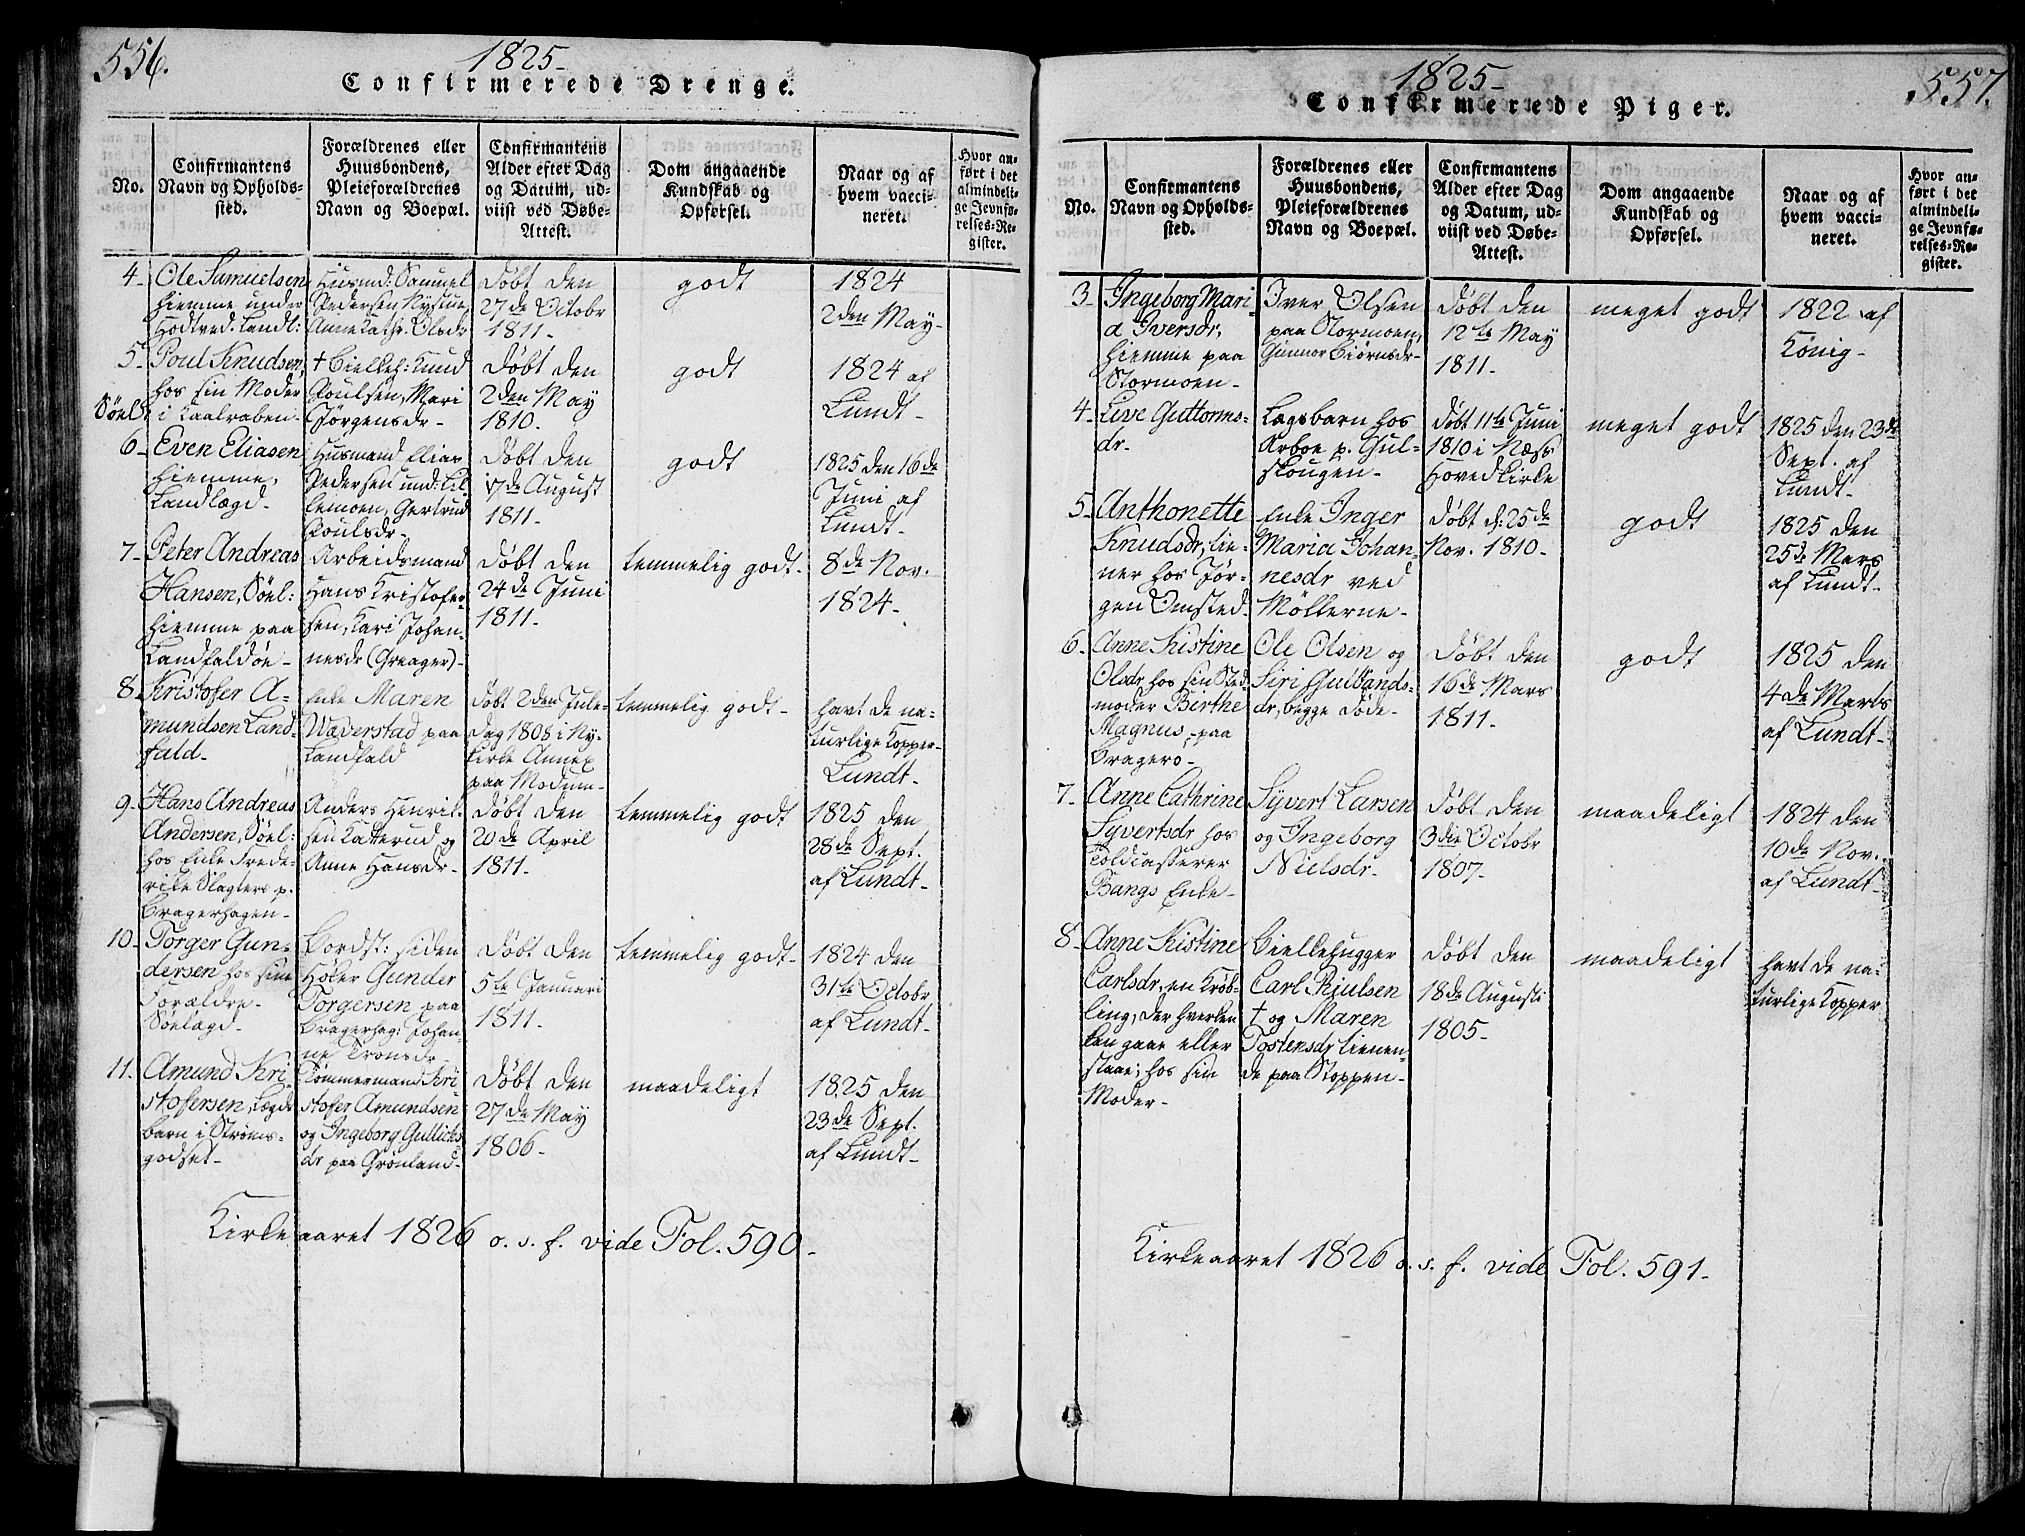 556.
1825-
Confirmerede Drenge.
No.
Confirmantens
Navn og Opholds-
sted.
Forældrenes eller
Huusbondens,
Pleieforældrenes
Navn og Boepæl.
Confirmantens
Alder efter Dag
og Datum, ud-
viist ved Døbe-
Attest.
Dom angaaende
Kundskab og
Opførsel.
Naar og af
hvem vacci-
neret.
Hvor an-
ført i det
almindeli-
ge Jevnfø-
relses-Re-
gister.
4-
Ole Samuelsen
hiemme under
Hodtved. Landl:
Husmd: Samuel
Pedersen Nystue,
Anne Kathr. Olsdr
Døbt den
27de Octobr
1811-
godt
1824
2den May-
5-
Søel:
Poul Knudsen,
hos sin Moder
i Kaalraben-
+ Bielleh: Knud
Poulsen, Mari
Jørgensdr-
Døbt den
2den May
1810-
godt
1824 af
Lundt-
6-
Even Eliasen
hiemme,
Landlægd-
Husmand Elias
Pedersen und: Lil-
lemoen, Gertrud
Poulsdr-
Døbt den
17de August
1811-
godt
1825 den 16de
Juni af
Lundt-
7-
Peter Andreas
Hansen, Søel:
hiemme paa
Landfaldøe-
Arbeidsmand
Hans Kristofer-
sen, Kari Johan-
nesdr (Greager)-
Døbt den
24de Juni
1811-
temmelig godt-
8de Nov.
1824-
8-
Kristofer A-
mundsen Land-
fald-
Enke Maren
Wæverstad paa
Landfald
Døbt 2den Jule-
dag 1808 i Ny-
kirke Annex
paa Modum-
temmelig godt-
havt de na-
turlige Kopper-
Lundt-
9-
Hans Andreas
Andersen, Søel:
hos Enke Frede-
rikke Slagters p.
Bragerhagen-
Anders Henrik-
sen Katterud og
Anne Hansdr-
Døbt den
20de April
1811-
temmelig godt
1825 den
28de Sept.
af Lundt-
10-
Torger Gun-
dersen hos sine
Forældre-
Søelægd-
Bordst: siden
Høker Gunder
Torgersen paa
Bragerhag: Johan-
ne Tronsdr-
Døbt den
5te Januari
1811-
temmelig godt-
1824 den
31te Octobr
af Lundt-
11-
Amund Kri-
stofersen, Lægds
barn i Strøms-
godset-
Tømmermand Kri
stofer Amundsen
og Ingeborg Gullichs
dr paa Grønland-
Døbt den
27de May
1806-
maadeligt
1825 den
23de Sept.
af Lundt-
Kirkeaaret 1826 o. s. f. vide Fol. 590-
557.
1825-
Confirmerede Piger.
No.
Confirmantens
Navn og Opholds-
sted.
Forældrenes eller
Huusbondens,
Pleieforældrenes
Navn og Boepæl.
Confirmantens
Alder efter Dag
og Datum, ud-
viist ved Døbe-
Attest.
Dom angaaende
Kundskab og
Opførsel.
Naar og af
hvem vacci-
neret.
Hvor an-
ført i det
almindeli-
ge Jevnfø-
relses-Re-
gister.
3-
Ingeborg Mari-
a Iversdr,
hiemme paa
Stormoen-
Iver Olsen
paa Stormoen,
Gunnor Biørnsdr-
Døbt den
12te May
1811-
meget godt
1822 af
König-
4-
Live Guttorms-
dr-
Lægsbarn hos
Arboe p. Gul-
skougen-
Døbt 11te Juni
1810 i Næss
Hovedkirke
meget godt
1825 den 23de
Sept. af
Lundt-
5-
Anthonette
Knudsdr, tie-
ner hos Jør-
gen Omsted-
Enke Inger
Maria Johan-
nesdr ved
Møllerne-
Døbt d: 25de
Nov. 1810-
godt
1825 den
25de Mars
af Lundt-
6-
Anne Kistine
Olsdr hos sin Sted-
moder Birthe
Magnus, paa
Bragerø-
Ole Olsen og
Siri Gulbrands-
dr, begge døde-
Døbt den
16de Mars
1811-
godt
1825 den
4de Marts
af Lundt-
7-
Anne Cathrine
Syvertsdr hos
Toldcasserer
Bangs Enke-
Syvert Larsen
og Ingeborg
Nielsdr-
Døbt den
3die Octobr
1807-
maadeligt
1824 den
10de Nov.
af Lundt-
8-
Anne Kistine
Carlsdr, en Krøb-
ling, der hverken
kan gaae eller
staae; hos sin
Moder-
Biellehugger
Carl Paulsen
+ og Maren
Tostensdr tienen-
de paa Toppen-
Døbt den
18de Augusti
1805-
maadeligt
havt de na-
turlige Kopper
Kirkeaaret 1826 o. s. f. vide Fol. 591-